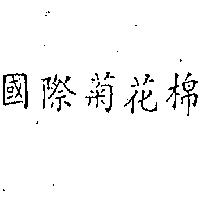 國際菊花棉